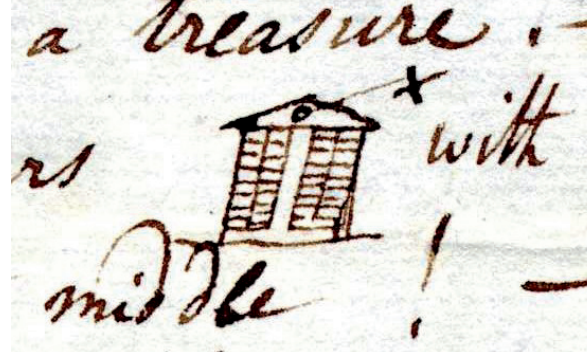 a treasure. -
rs x with
middle! -